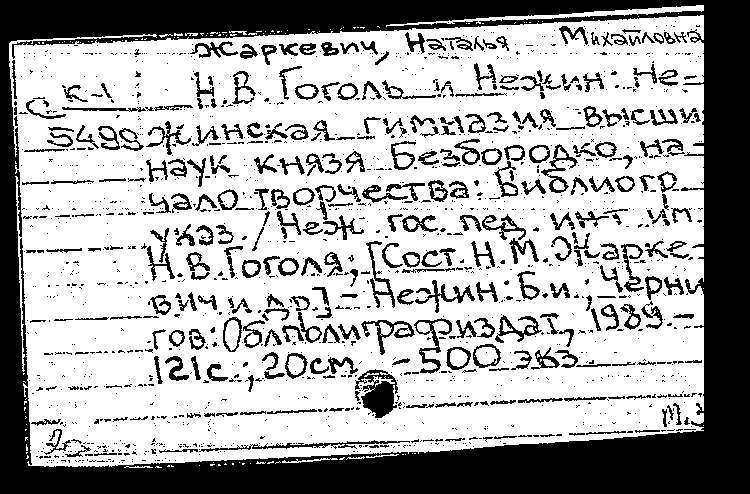 Жаркевич, Наталья Михайловна
Н.В. Гоголь и Нежин: Не-
С К-1
5498
жинская гимназия высши
наук князя Безбородко, на-
чало творчества: Библиогр.
указ. / Неж. гос. пед. ин-т им.
Н.В. Гоголя; [Сост. Н.М. Жарке-
вич и др.] - Нежин: Б.и.; Черни
гов: Облполиграфиздат, 1989. -
121с.; 20см - 500 экз.